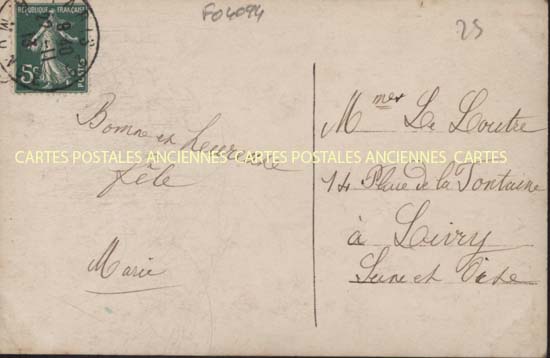 F04094
25
REPUBLIQUE FRANÇAISE
5c
POSTES
Bonne et heureuse
fête
Marie
Mmes Le Loutre
14 Place de la Fontaine
à Livry
Seine et Oise
CARTES POSTALES ANCIENNES CARTES POSTALES ANCIENNES CARTES